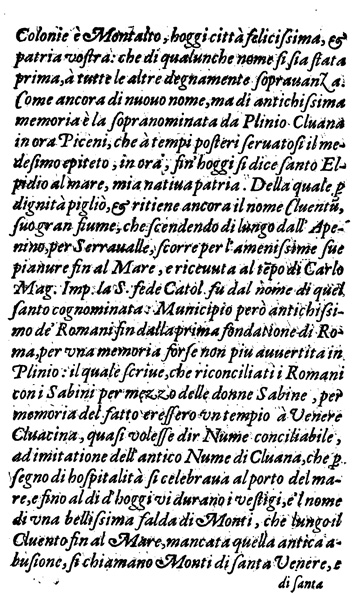 Colonie è Montalto, hoggi città felicissima, &
patria vostra: che di qualunche nome si sia stata
prima, à tutte le altre degnamente soprauanza.
Come ancora di nuouo nome, ma di antichissima
memoria è la sopranominata da Plinio Cluana
in ora Piceni, che à tempi posteri seruatosi il me-
desimo epiteto, in ora, fin' hoggi si dice santo El-
pidio al mare, mia natiua patria. Della quale p̱
dignità pigliò, & ritiene ancora il nome Cluentũ,
suo gran fiume, che scendendo di lungo dall' Ape-
nino, per Serraualle, scorre per l'amenissime sue
pianure fin al Mare, e riceuuta al tẽpo di Carlo
Mag. Imp. la S. fede Catol. fu dal nome di quel
santo cognominata: Municipio però antichissi-
mo de' Romani fin dalla prima fondatione di Ro-
ma, per vna memoria forse non piu auuertita in
Plinio: il quale scriue, che riconciliati i Romani
con i Sabini per mezzo delle donne Sabine, per
memoria del fatto eressero vn tempio à Venere
Cluacina, quasi volesse dir Nume conciliabile,
ad imitatione dell' antico Nume di Cluana, che p̱
segno di hospitalità si celebraua al porto del ma-
re, e fino al dì d'hoggi vi durano i vestigi, e'l nome
di vna bellissima falda di Monti, che lungo il
Cluento fin al Mare, mancata quella antica a-
busione, si chiamano Monti di santa Venere, e
di santa